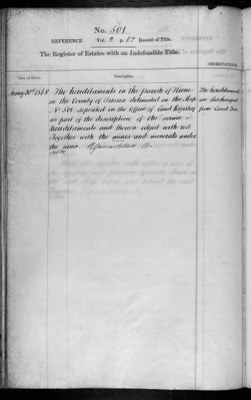 No. 501
REFERENCE Vol. 2 p. 62 Record of Title.
The Register of Estates with an Indefeasible Title.
OBSERVATIONS.
Date of Entry.
Description.
1868 The hereditaments in the parish of
in the County of Sussex delineated on the Map
No 501 deposited in the Office of Land Registry
as part of the description of the same
hereditaments and thereon edged with red
Together with the mines and minerals under
the same
The hereditaments
are discharged
from Land Tax